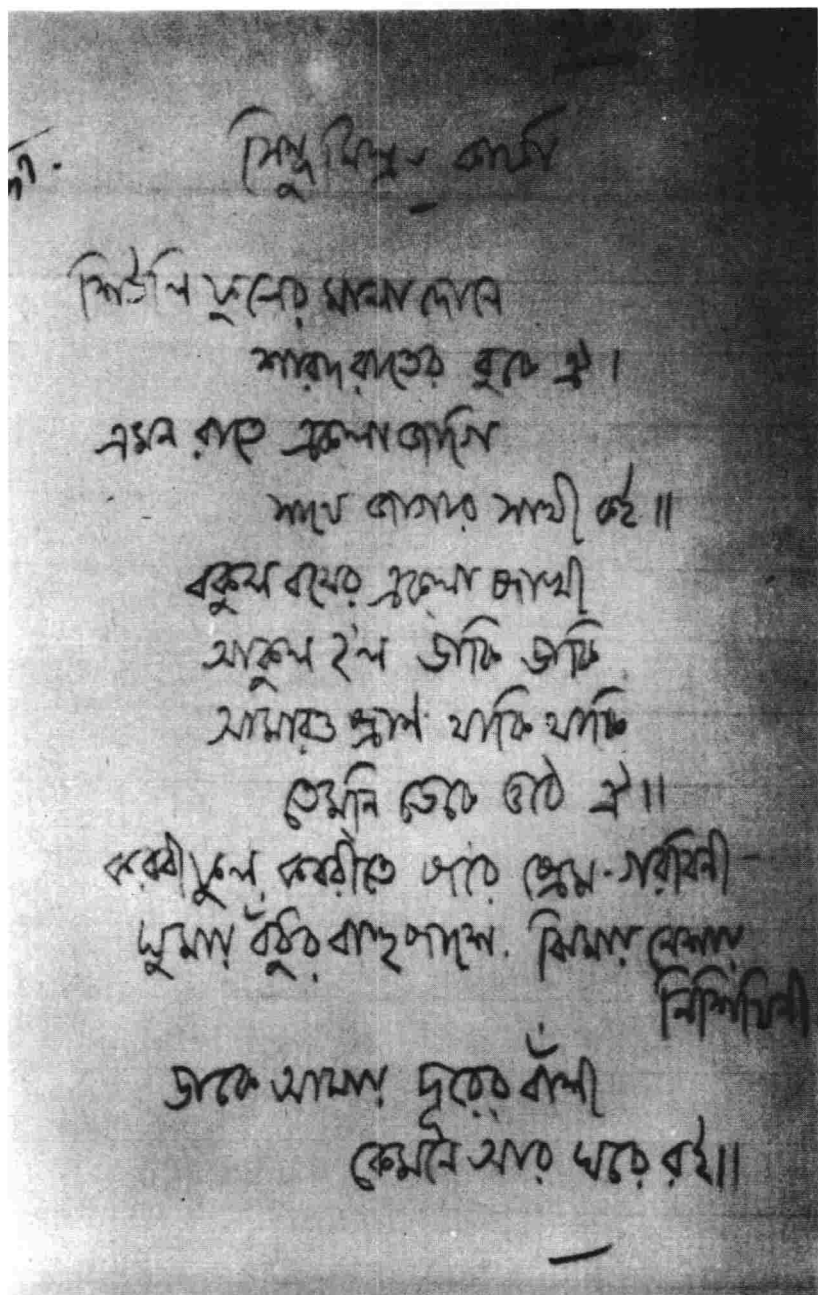 সিন্ধু মিশ্র কার্ফা
শিউলি ফুলের মালা দোলে
শারদ রাতের বুকে ঐ।
এমন রাতে একলা জাগি
সাথে জাগার সাথী কই॥
বকুল বনের একলা পাখী
আকুল হ'ল ডাকি ডাকি
আমারও প্রাণ থাকি থাকি
তেমনি ডেকে ওঠে ঐ॥
করবী ফুল কবরীতে পরে প্রেম-গরবিনী
ঘুমায় বঁধুর বাহুপাশে. ঝিমায় নেশায়
নিশিথিনী
ডাকে আমায় দূরের বাঁশী
কেমনে আর ঘরে রই॥